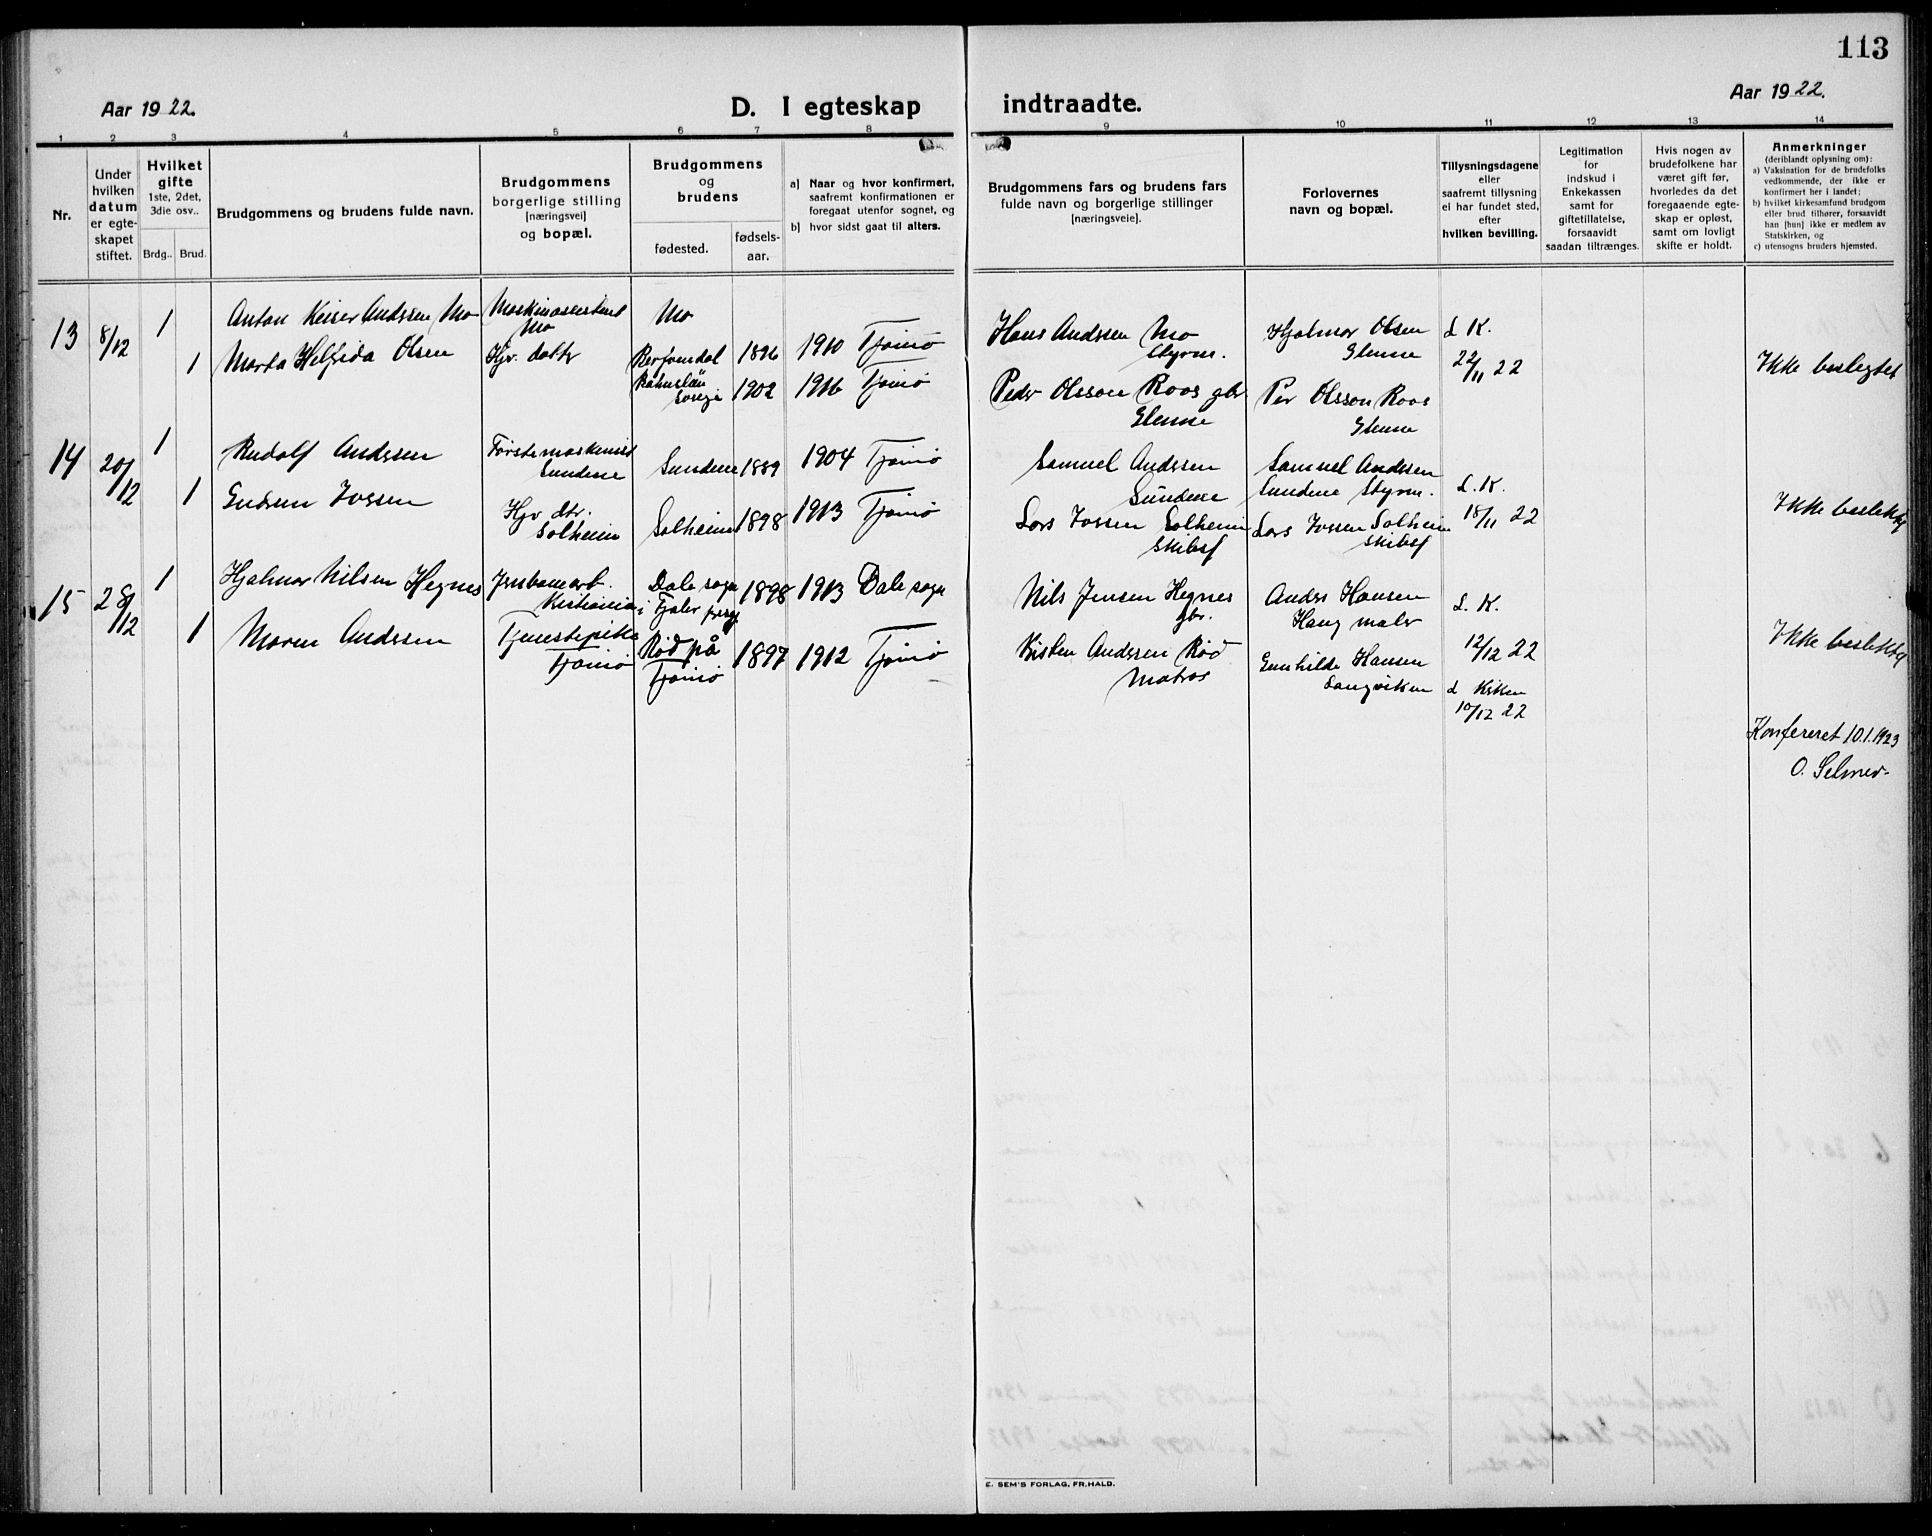 113
Aar 1922.
D. I egteskap indtraadte.
Aar 1922.
1 2 3 4 5 6 7 8 9 10 11 12 13 14
Nr.
Under
hvilken
datum
er egte-
skapet
stiftet.
Hvilket
gifte
1ste, 2det,
3die osv..
Brdg.. Brud.
Brudgommens og brudens fulde navn.
Brudgommens
borgerlige stilling
[næringsvei]
og bopæl.
Brudgommens
og
brudens
fødested.
fødsels-
aar.
a) Naar og hvor konfirmert,
saafremt konfirmationen er
foregaat utenfor sognet, og
b) hvor sidst gaat til alters.
Brudgommens fars og brudens fars
fulde navn og borgerlige stillinger
[næringsveie].
Forlovernes
navn og bopæl.
Tillysningsdagene
eller
saafremt tillysning
ei har fundet sted,
efter
hvilken bevilling.
Legitimation
for
indskud i
Enkekassen
samt for
giftetillatelse,
forsaavidt
saadan tiltrænges.
Hvis nogen av
brudefolkene har
været gift før,
hvorledes da det
foregaaende egte-
skap er opløst,
samt om lovligt
skifte er holdt.
Anmerkninger
(deriblandt oplysning om):
a) Vaksination for de brudefolks
vedkommende, der ikke er
konfirmert her i landet;
b) hvilket kirkesamfund brudgom
eller brud tilhører, forsaavidt
han [hun] ikke er medlem av
Statskirken, og
c) utensogns bruders hjemsted.
13 8/12 1 Anton Keiser Andersen Mo
Maskinassistent
Mo
Mo 1896 1910 Tjømø
Hans Andersen Mo
Styrm.
Hjalmar Olsen
Glenne
d K.
22/11 22
1 Marta Helfrida Olsen
Hjv. datter
Bahuslän
Sverige
1902 1916 Tjømø
Peder Olsson Roos gbr
Glenne
Per Olsson Roos
Glenne
Ikke beslegtet
14 20/12 1 Rudolf Andersen
Førstemaskinist
Sundene
Sundene 1889 1904 Tjømø
Samuel Andersen
Sundene
Samuel Andersen
Sundene Styrm.
d. K.
18/11 22
1 Gudrun Iversen
Hjv. dtr.
Solheim
Solheim 1898 1913 Tjømø
Lars Iversen Solheim
Skibsf
Lars Iversen Solheim
Skibsf
Ikke beslektet
15 28/12 1 Hjalmar Nilsen Hegnes
Jernbanearb.
Kristiania
Dale sogn
i Fjaler prgj
1898 1913 Dale sogn
Nils Jensen Hegnes
gbr.
Anders Hansen
Haug maler
d. K.
12/12 22
1 Maren Andersen
Tjenestepike
Tjømø
Rød på
Tjømø
1897 1912 Tjømø
Kristen Andersen Rød
Matros
Gunhilde Hansen
Langviken
d Kirken
10/12 22
Ikke beslektet
Konfereret 10.1.1923
O. Selmer.
E. SEM'S FORLAG, FR.HALD.